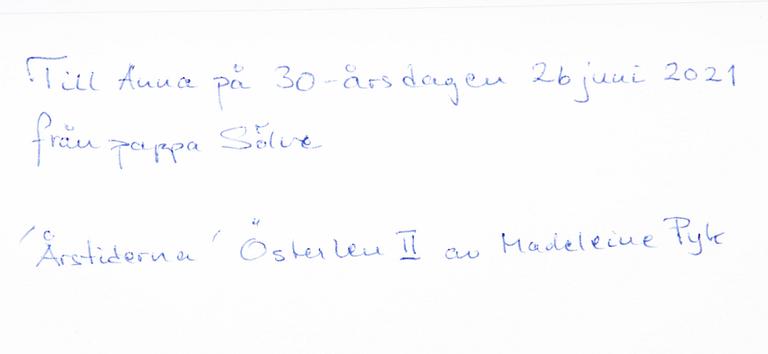 Till Anna på 30-årsdagen 26 juni 2021
från pappa Sölve
'Årstiderna' Österlen II av Madeleine Pyk